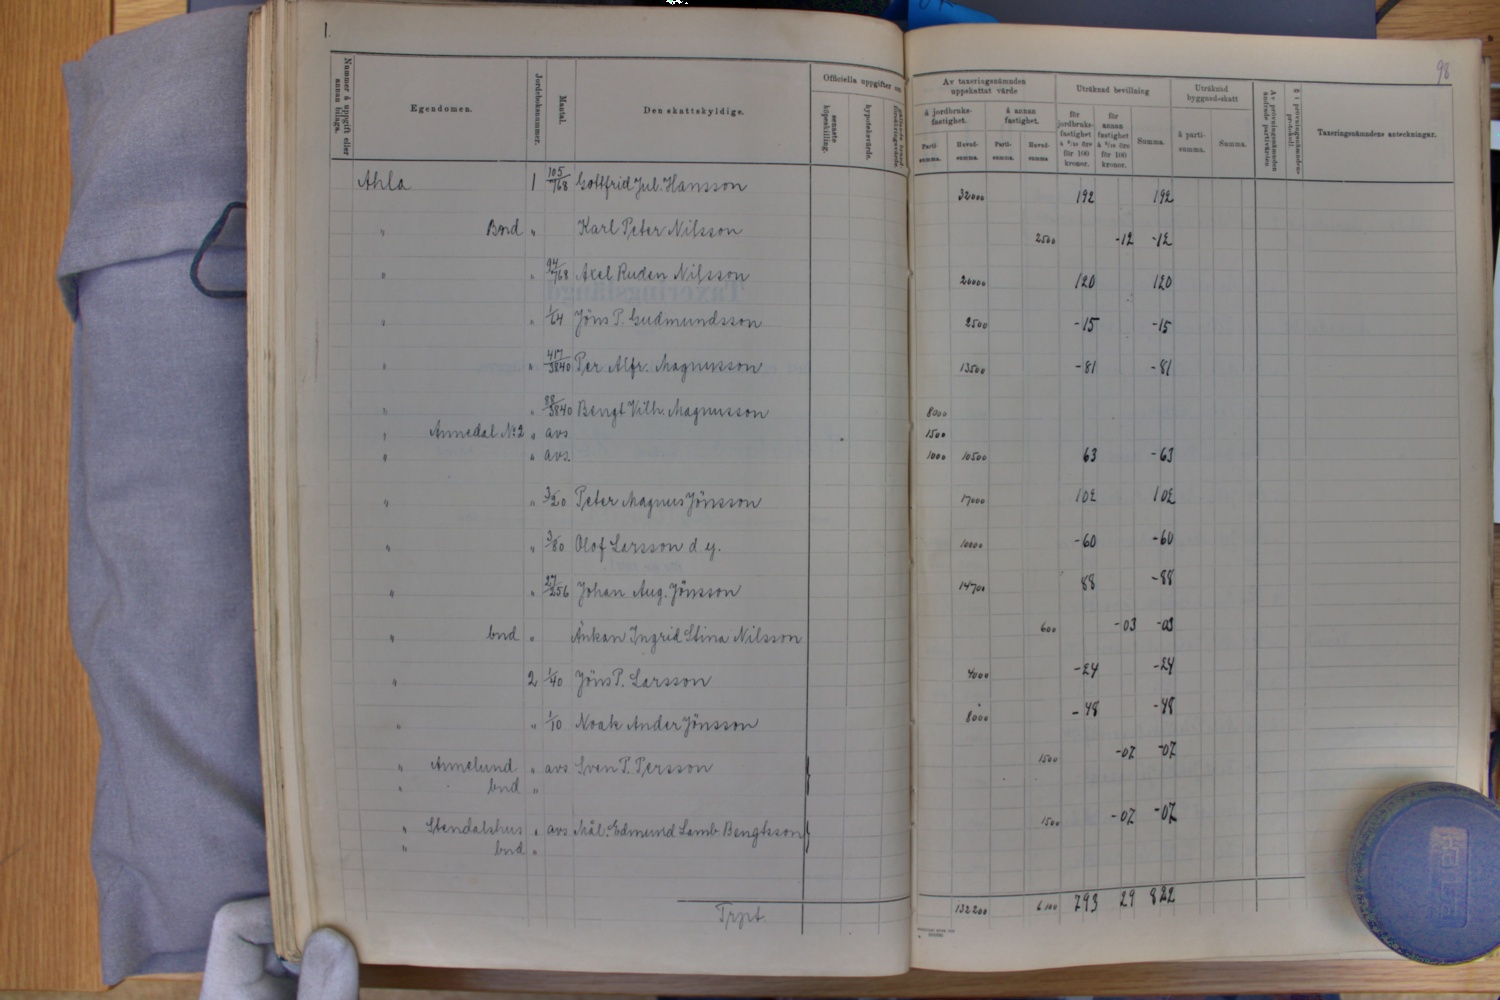 1.
98
Nummer å uppgift eller annan bilaga.
Egendomen.
Jordeboksnummer.
Mantal.
Den skattskyldige.
Officiella uppgifter om
senaste köpeskilling.
hypoteksvärde.
Av taxeringsnämnden uppskattat värde
å jordbruksfastighet.
å annan fastighet.
Parti-summa.
Huvud-summa
Parti-summa.
Huvud-summa
Uträknad bevillning
för jordbruksfastighet à 6/10 öre för 100 kronor.
för annan fastighet à 5/10 öre för 100 kronor.
Summa.
Uträknad byggnadsskatt
à parti-summa.
Summa.
Taxeringsnämndens anteckningar.
Ahla 1 105/768 Gottfrid Jul. Hansson 32000 192 192
" Bnd " Karl Peter Nilsson 2500 -12 -12
" " 94/768 Axel Ruden Nilsson 20000 120 120
" " 1/64 Jöns P. Gudmundsson 2500 -15 -15
" " 417/3840 Per Alfr. Magnusson 13500 -81 -81
" " 88/3840 Bengt Vilh. Magnusson 8000
" Annedal No 2 " avs 1500
" " avs. 1000 10500 63 -63
" " 3/20 Peter Magnus Jönsson 17000 102 102
" " 3/80 Olof Larsson d.y. 10000 -60 -60
" " 27/256 Johan Aug. Jönsson 14700 88 -88
" bnd " Änkan Ingrid Stina Nilsson 600 -03 -03
" 2 1/40 Jöns P. Larsson 4000 -24 -24
" " 1/10 Noak Ander Jönsson 8000 -48 -48
" Annelund " avs Sven P. Persson 1500 -07 -07
" bnd "
" Stendalshus " avs Mål. Edmund Lamb. Bengtsson 1500 -07 -07
" bnd "
Trprt. 132200 6100 793 29 822